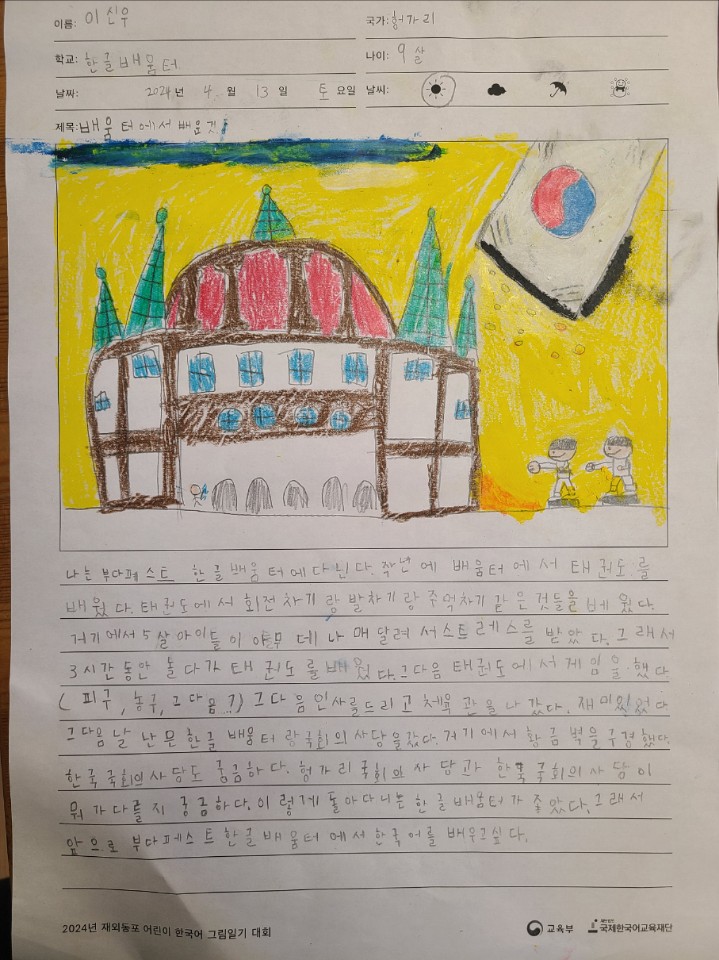 이름: 이신우
국가: 헝가리
학교: 한글배움터
나이: 9살
날짜: 2024년 4월 13일 토요일
날씨:
제목: 배움터에서 배운것
나는 부다페스트 한글배움터에다닌다. 작년에 배움터에서 태권도를
배웠다. 태권도에서 회전차기랑발차기랑주먹차기같은것들을베웠다.
거기에서5살아이들이아무데나매달려서스트레스를받았다. 그래서
3시간동안놀다가태권도를배웠다.그다음태권도에서게임을했다
(피구,농구,그다음..?)그다음인사를드리고체육관을나갔다. 재미있었다
그다음날난또한글배움터랑국회의사당을갔다.거기에서황금벽을구경했다.
한국국회의사당도궁금하다. 헝가리국회의사당과한국국회의사당이
뭐가다를지궁금하다.이렇게돌아다니는한글배움터가좋았다.그래서
앞으로부다페스트한글배움터에서한국어를배우고싶다.
2024년 재외동포 어린이 한국어 그림일기 대회
교육부
재단법인
국제한국어교육재단